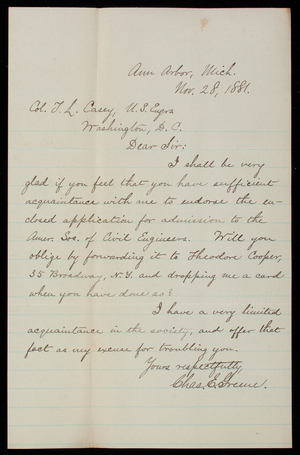 Ann Arbor, Mich.
Nov. 28, 1881.
Col. T. L. Casey, U.S. Engrs
Washington, D. C.
Dear Sir:
I shall be very
glad if you feel that you have sufficient
acquaintance with me to endorse the en-
closed application for admission to the
Amer. Soc. of Civil Engineers. Will you
oblige by forwarding it to Theodore Cooper,
35 Broadway, N.Y. and dropping me a card
when you have done so?
I have a very limited
acquaintance in the society, and offer that
fact as my excuse for troubling you.
Yours respectfully,
Chas. E. Greene.